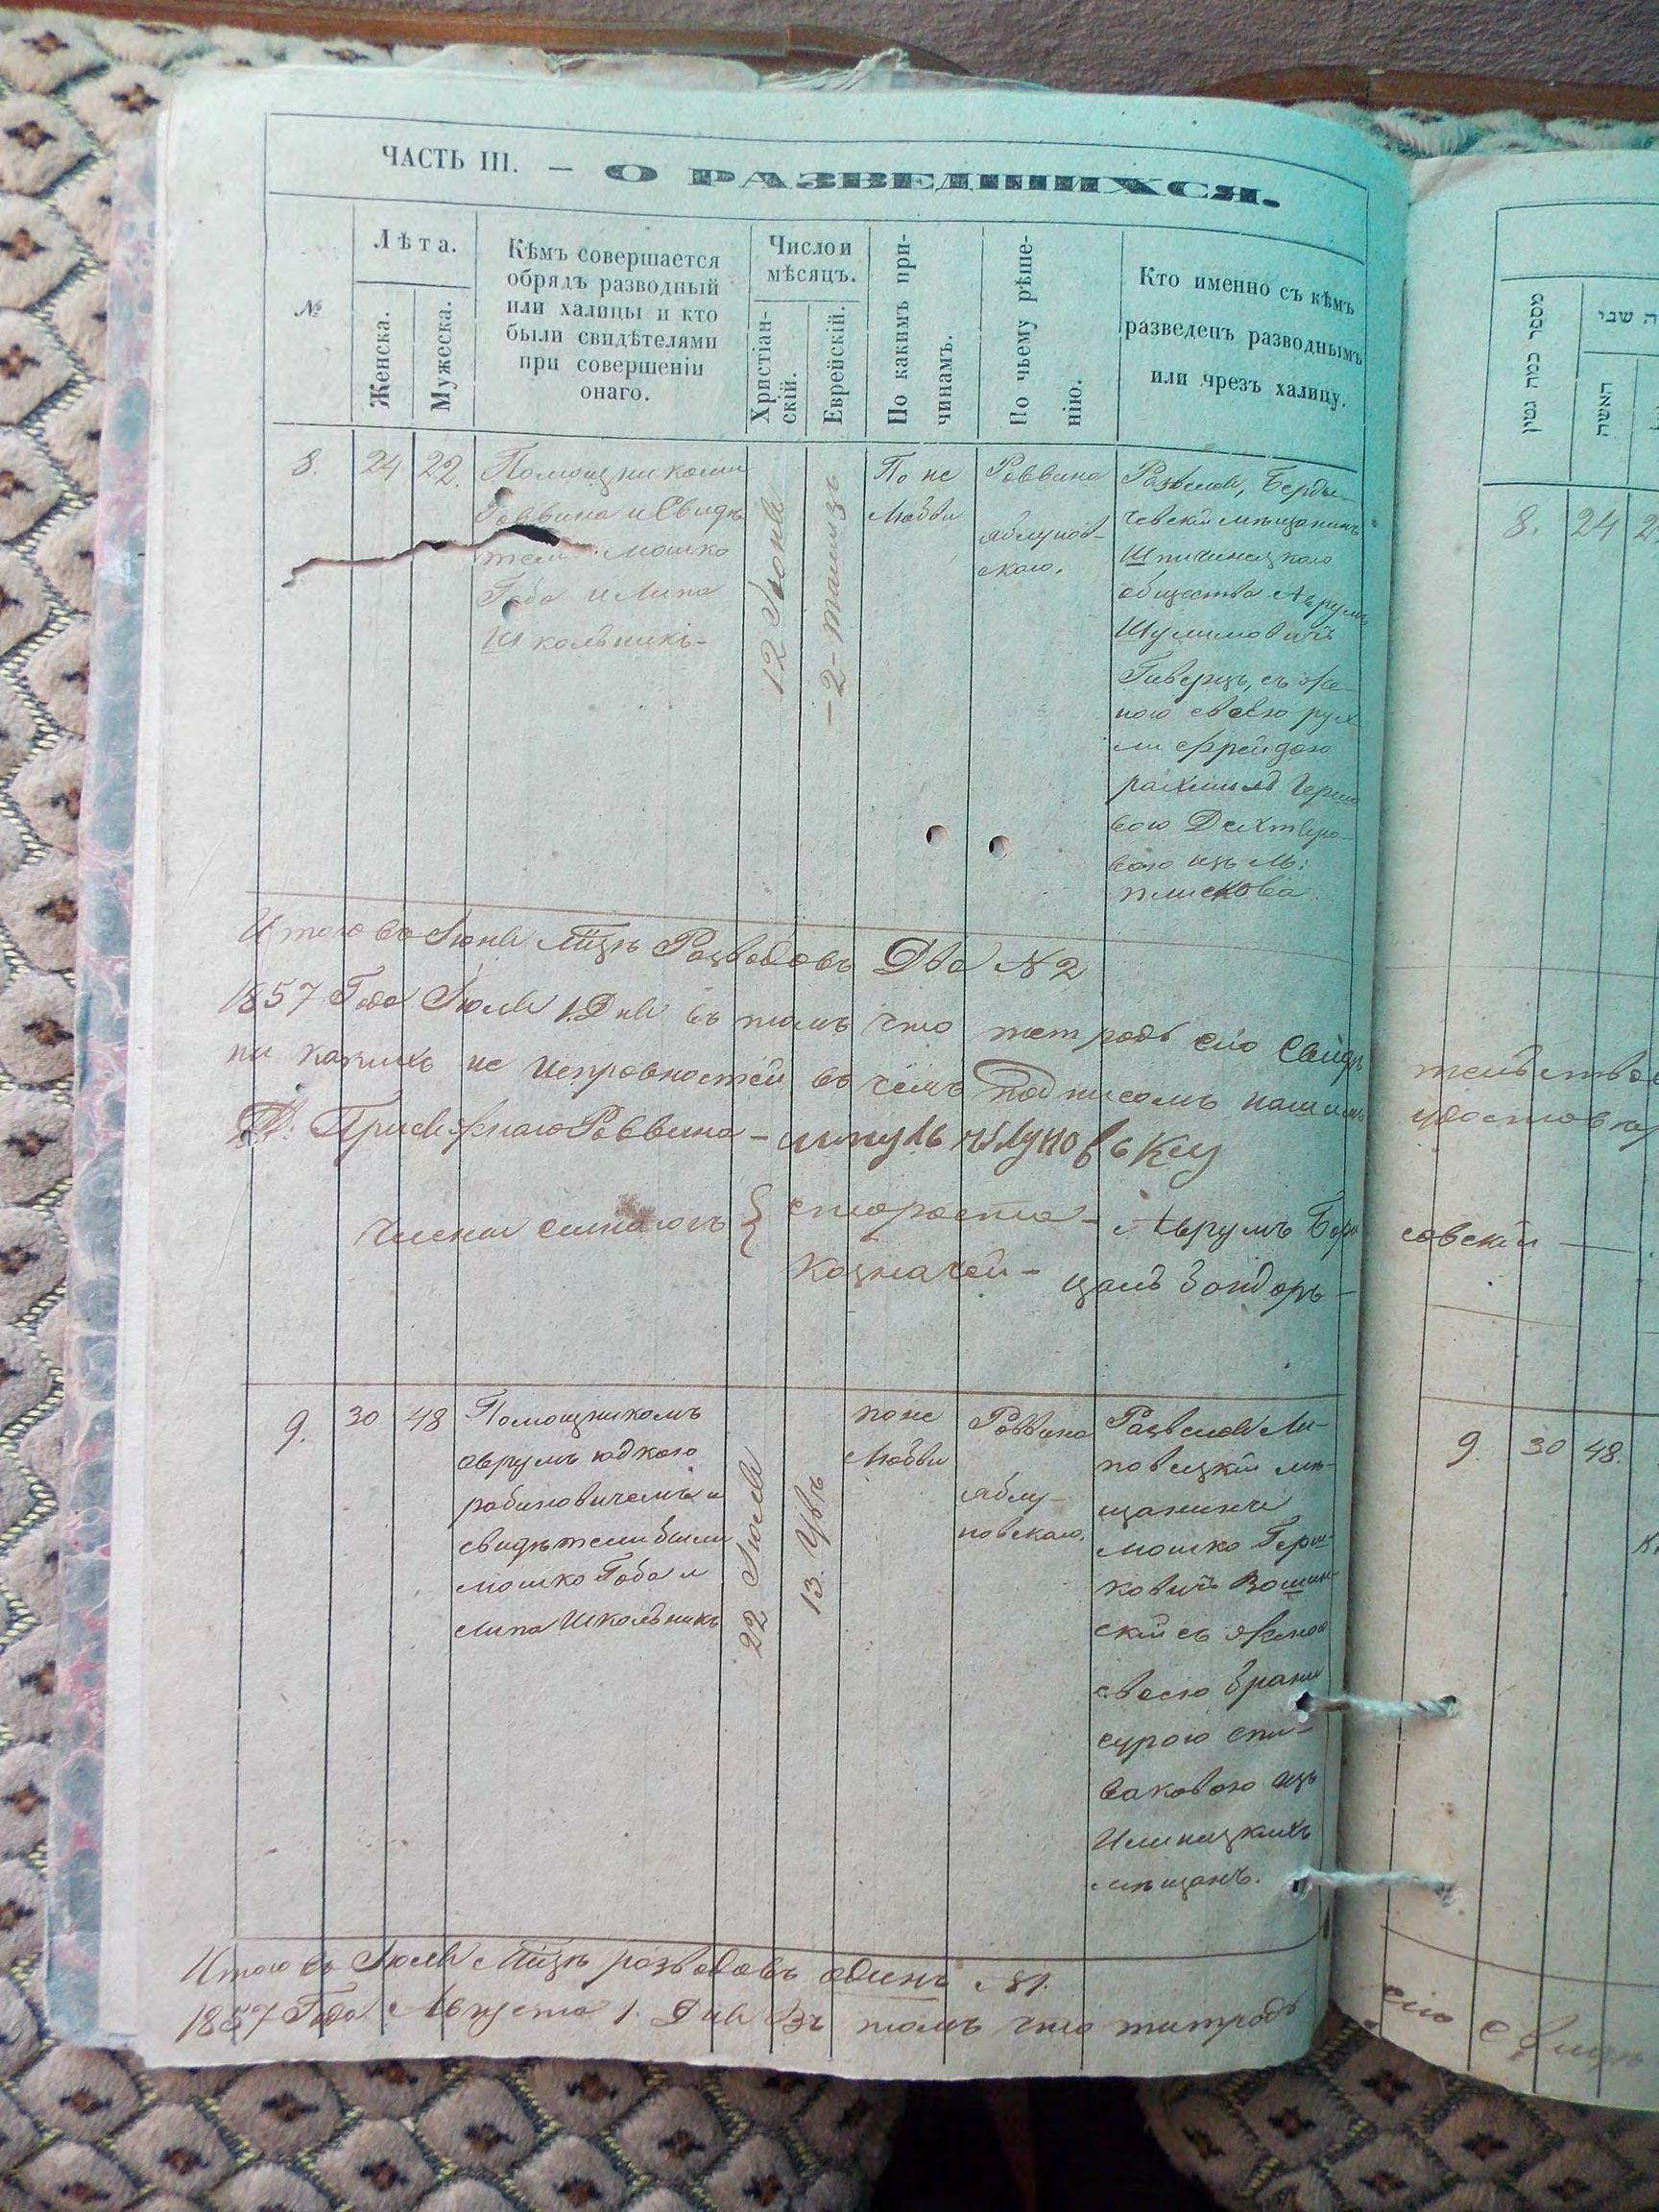 ЧАСТЬ III. — О РАЗВЕДШИХСЯ.
№
Лѣта.
Женска.
Мужеска.
Кѣмъ совершается
обрядъ разводный
или халицы и кто
были свидѣтелями
при совершеніи
онаго.
Число и
мѣсяцъ.
Христіан-
скій.
Еврейскій.
По какимъ при-
чинамъ.
По чьему рѣше-
нію.
Кто именно съ кѣмъ
разведенъ разводнымъ
или чрезъ халицу.
8.
24
22.
Помощникомъ
Раввина и Свидѣ
тели Мошко
Гоба и Липа
Школьникъ-
12 Іюня
-2- тамизъ
По не
Любви
Раввина
яблунов-
скаго.
Развелся, Берды-
чевскій мѣщанинъ
Шпичинецкаго
общества Аврумъ
Шулимовичъ
съ же-
ною своею рух
ли Фрейдою
вою изъ М:
плискова
Итого въ Іюнѣ М̃цѣ Разводовъ Два N 2
1857 Года Іюля 1. Дня въ томъ что тетрадь сію Свидѣ
ни какихъ не исправностей въ чемъ подписомъ нашимъ
Присяжнаго Раввина -
Члены синагогъ { старости - Аврумъ
Казначей - цаль Бондарь -
9.
30
48
Помощникомъ
аврумъ юдкою
рабиновичемъ и
свидѣтели были
мошко Гоба и
липа Школьникъ
22 Іюля
13. Увъ
по не
Любви
Раввина
яблу-
новскаго.
Развелся Ли-
повецкій мѣ-
щанинъ
мошко Герш-
ковичъ
скій съ женою
своею
сурою спи-
ваковою изъ
Илинецкихъ
мѣщанъ.
Итого въ Іюлѣ М̃цѣ разводовъ одинъ N 1.
1857 Года Августа 1. Дня Въ томъ что титрадь
מספר כמה גטין
האשה
8.
24
совскій
9.
30
48.
сію Свидѣ